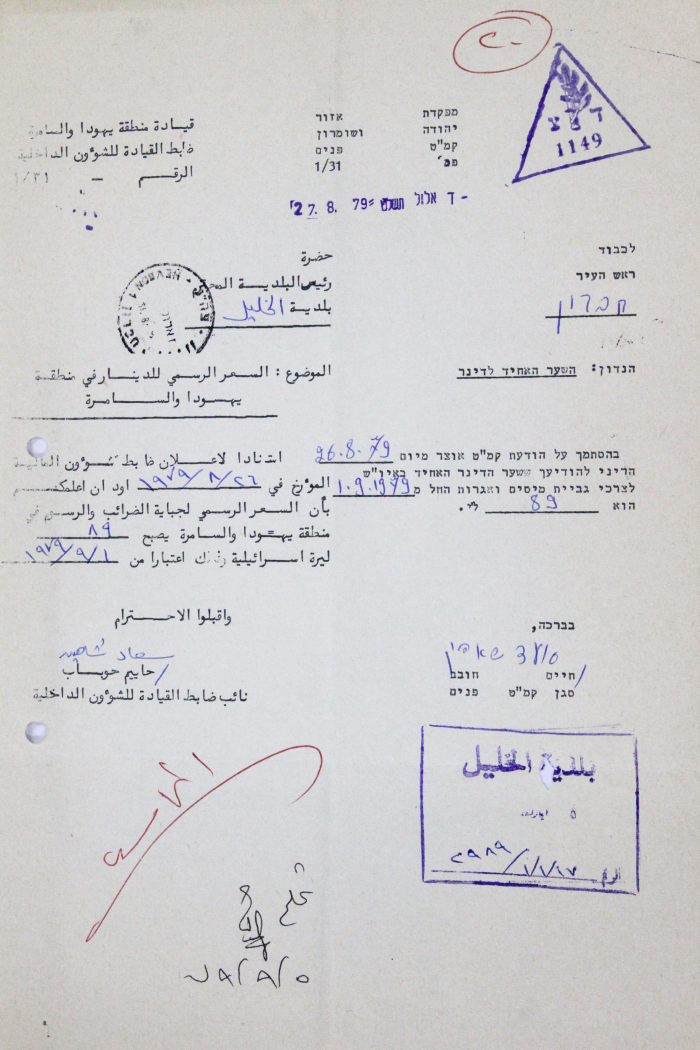 ד צ צ
1149
מפקדת אזור
יהודה ושומרון
קמ"ט פנים
פמ' 1/31
قيادة منطقة يهودا والسامرة
ضابط القيادة للشؤون الداخلية
الرقـــــم - ١/٣١
ד אלול תשל"ט 27. 8. 79
לכבוד
ראש העיר
חברון
حضرة
رئيس البلدية
بلدية الخليل
הנדון: השער האחיד לדינר
الموضوع : السعر الرسمي للدينار في منطقة
يهودا والسامرة
בהסתמך על הודעת קמ"ט אוצר מיום 26.8.79
הריני להודיעך ששער הדינר האחיד באיו"ש
לצרכי גביית מיסים ואגרות החל מ 1.9.1979
הוא 89 ל"י.
استنادا لاعلان ضابط شؤون المالية
المؤرخ في ١٩٧٩/٨/٢٦ اود ان اعلمكم
بأن السعر الرسمي لجباية الضرائب والرسوم في
منطقة يهودا والسامرة يصبح ٨٩
ليرة اسرائيلية وذلك اعتبارا من ١٩٧٩/٩/١
בברכה,
חיים חובב
סגן קמ"ט פנים
واقبلوا الاحترام
/حاييم حوباب
نائب ضابط القيادة للشؤون الداخلية
بلدية الخليل
الرقم
٧٩/٩/٥